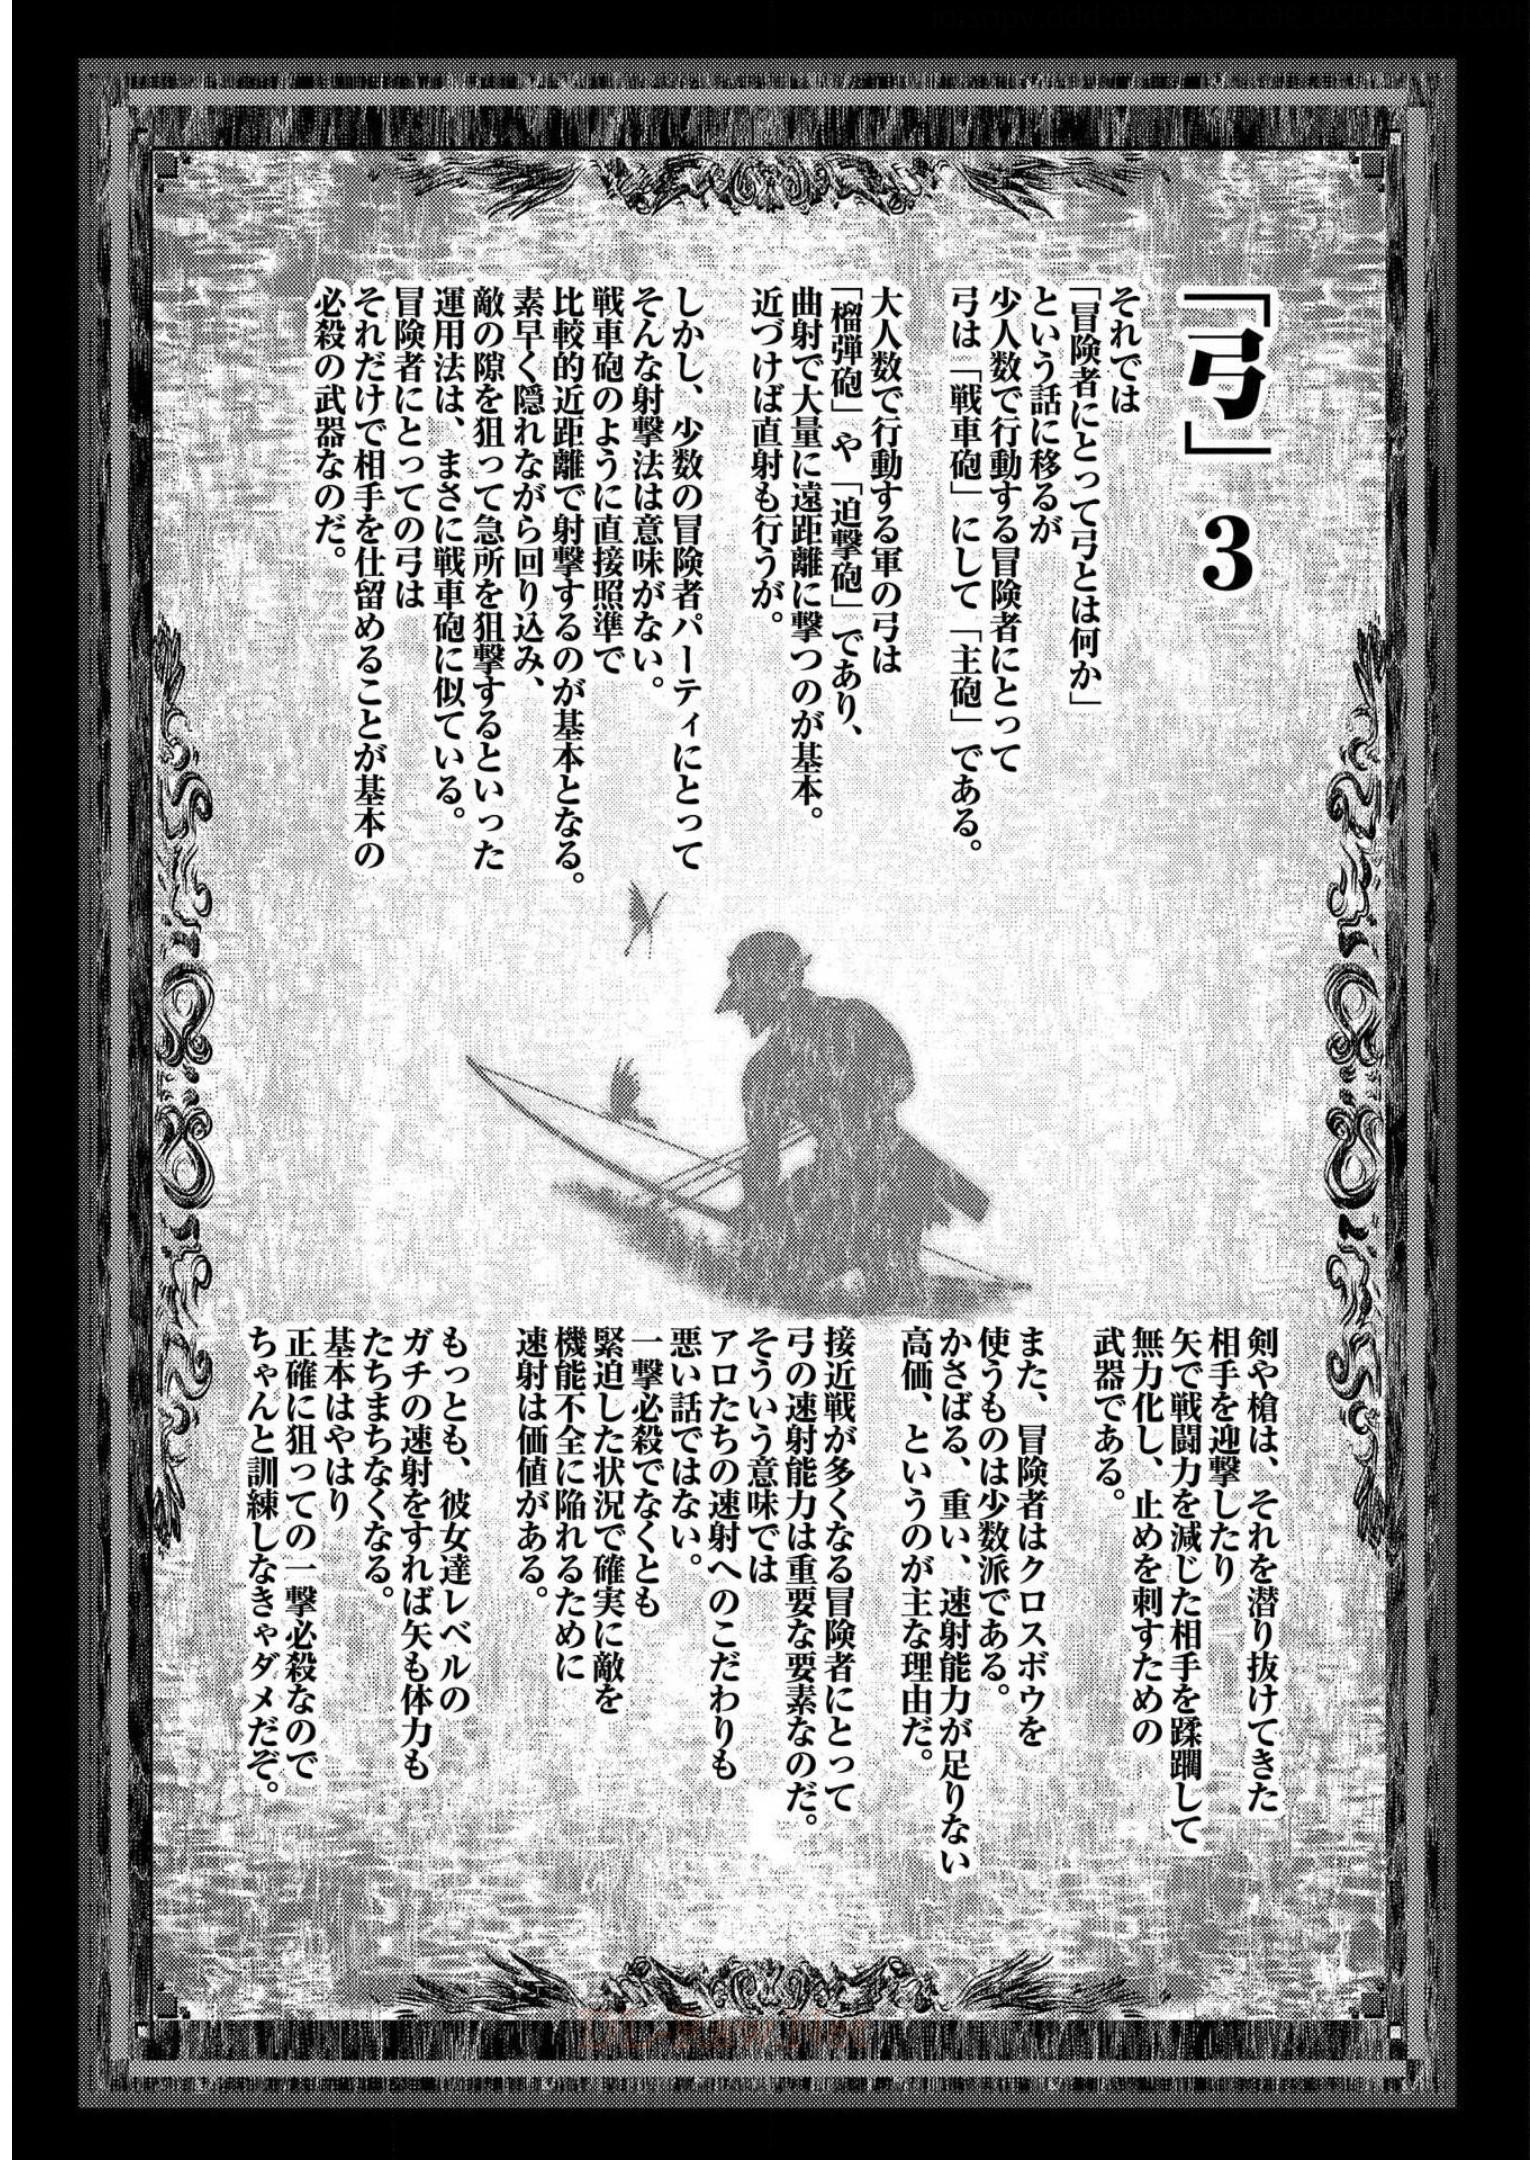 「弓」3
それでは
「冒険者にとって弓とは何か」
という話に移るが
少人数で行動する冒険者にとって
弓は「戦車砲」にして「主砲」である。
大人数で行動する軍の弓は
「榴弾砲」や「迫撃砲」であり、
曲射で大量に遠距離に撃つのが基本。
近づけば直射も行うが。
しかし、少数の冒険者パーティにとって
そんな射撃法は意味がない。
戦車砲のように直接照準で
比較的近距離で射撃するのが基本となる。
素早く隠れながら回り込み、
敵の隙を狙って急所を狙撃するといった
運用法は、まさに戦車砲に似ている。
冒険者にとっての弓は
それだけで相手を仕留めることが基本の
必殺の武器なのだ。
剣や槍は、それを潜り抜けてきた
相手を迎撃したり
矢で戦闘力を減じた相手を蹂躙して
無力化し、止めを刺すための
武器である。
また、冒険者はクロスボウを
使うものは少数派である。
かさばる、重い、速射能力が足りない
高価、というのが主な理由だ。
接近戦が多くなる冒険者にとって
弓の速射能力は重要な要素なのだ。
そういう意味では
アロたちの速射へのこだわりも
悪い話ではない。
一撃必殺でなくとも
緊迫した状況で確実に敵を
機能不全に陥れるために
速射は価値がある。
もっとも、彼女達レベルの
ガチの速射をすれば矢も体力も
たちまちなくなる。
基本はやはり
正確に狙っての一撃必殺なので
ちゃんと訓練しなきゃダメだぞ。